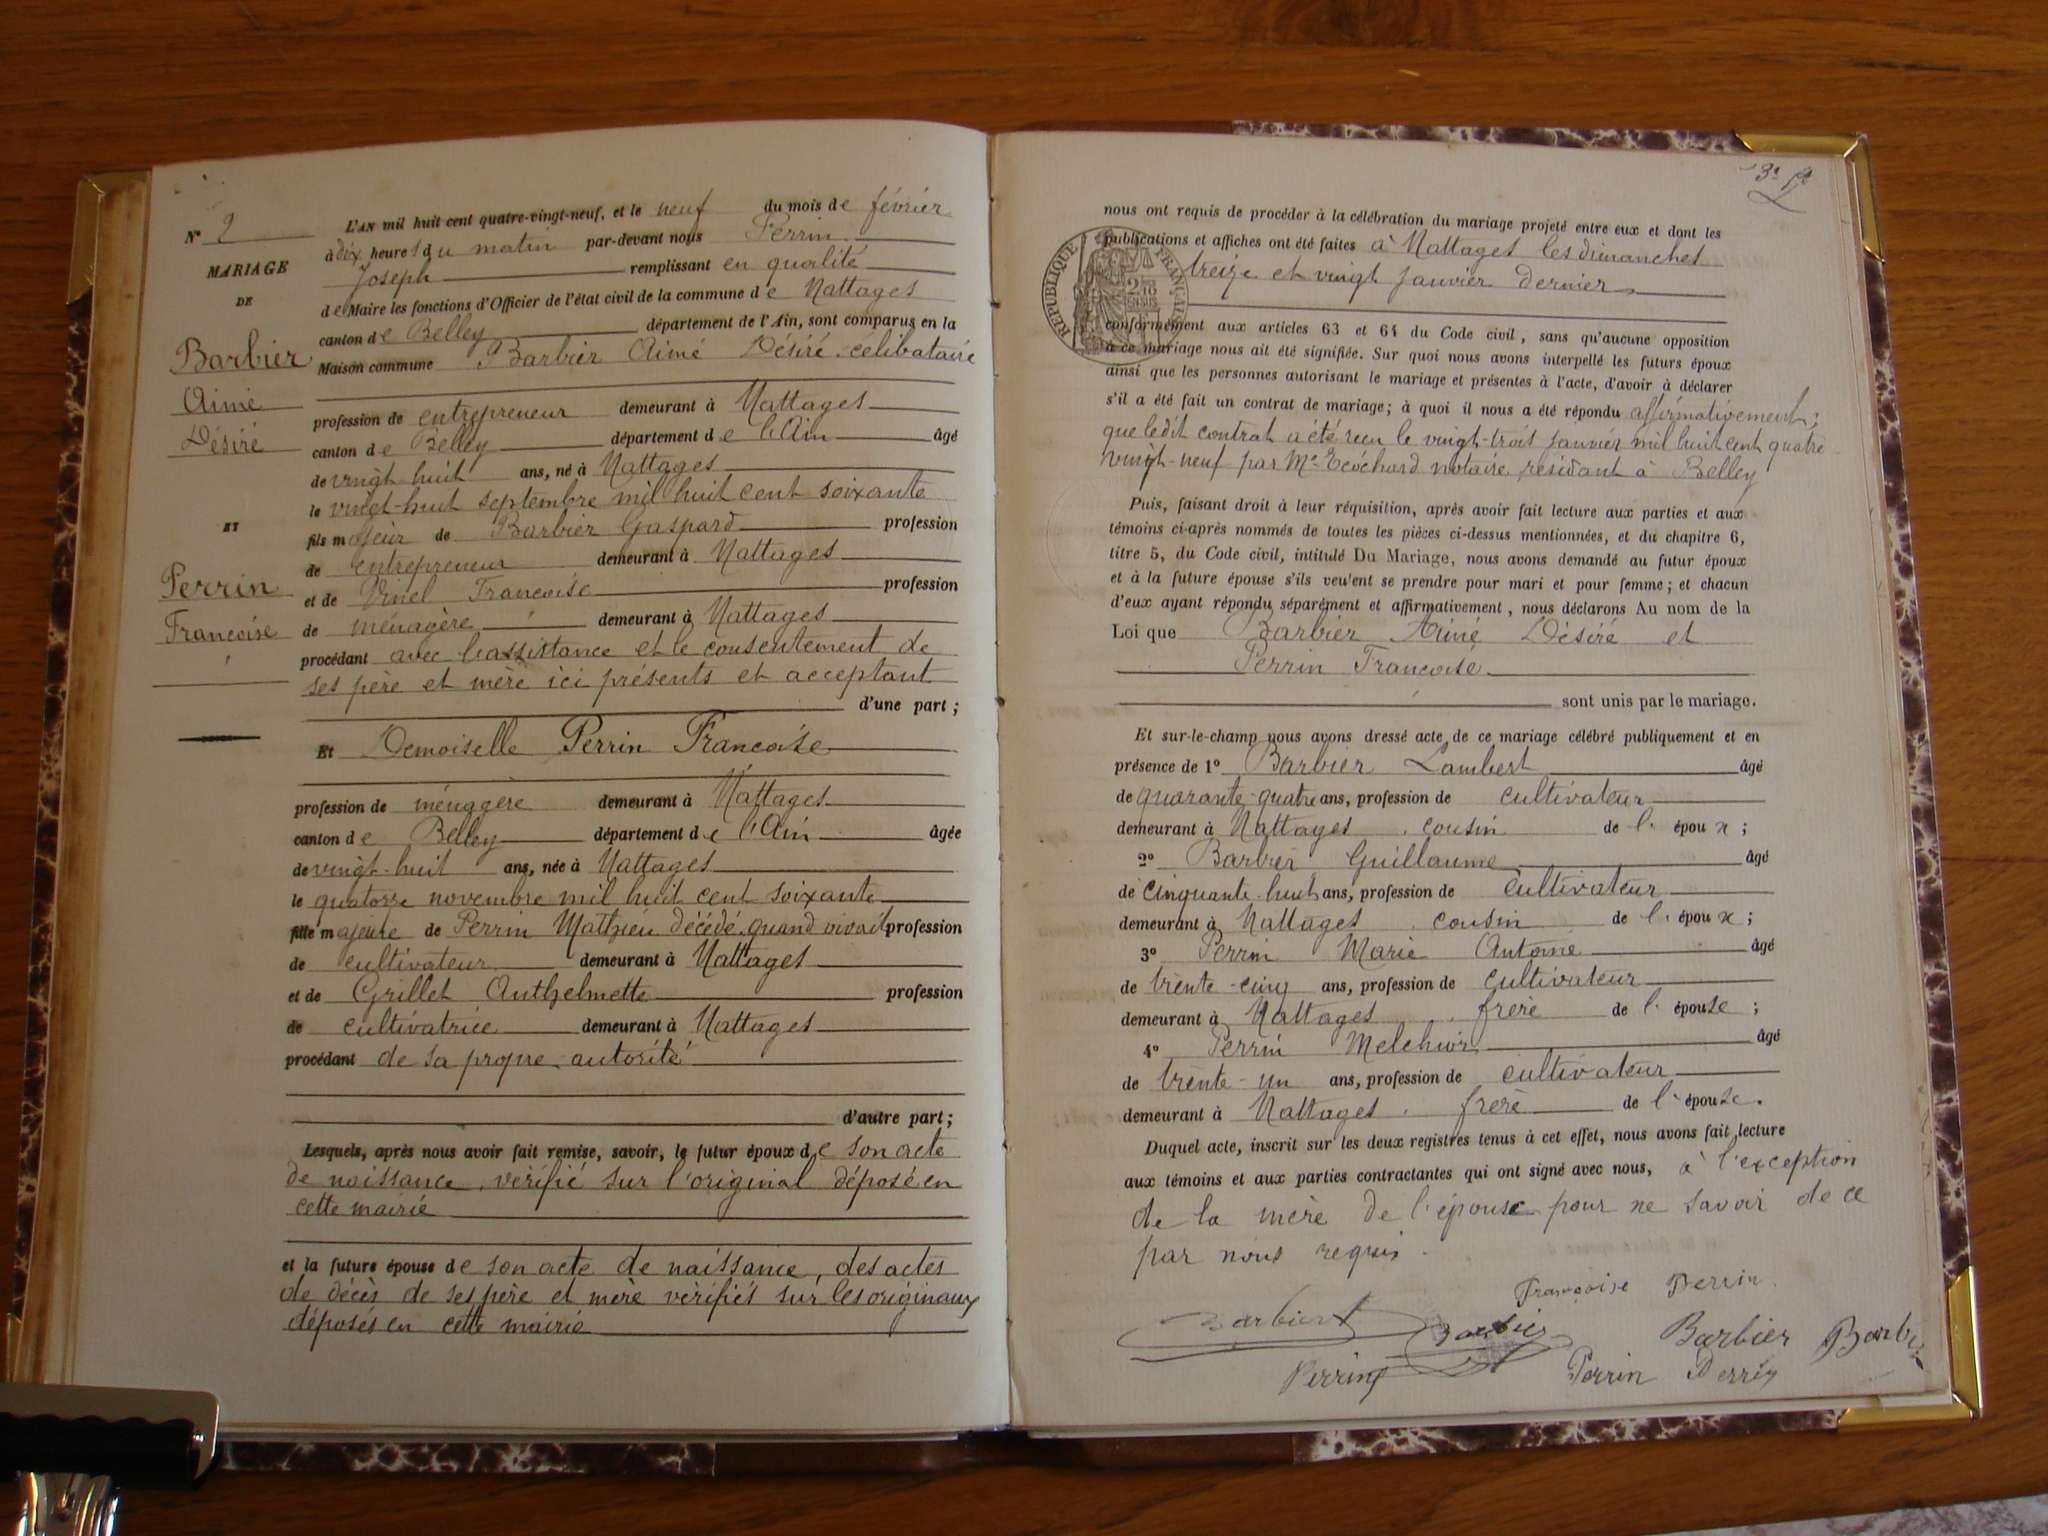 N° 2
MARIAGE
DE
Barbier
Aimé
Désiré
ET
Perrin
Francoise
L'AN mil huit cent quatre-vingt-neuf, et le neuf du mois de février
à dix heures du matin par-devant nous Perrin
Joseph remplissant en qualité
de Maire les fonctions d'Officier de l'état civil de la commune de Nattages
canton de Belley département de l'Ain, sont comparus en la
Maison commune Barbier Aimé Désiré célibataire
profession de entrepreneur demeurant à Nattages
canton de Belley département de l'Ain âgé
de vingt huit ans, né à Nattages
le vingt-huit septembre mil huit cent soixante
fils majeur de Barbier Gaspard profession
de entrepreneur demeurant à Nattages
et de Vinel Francoise profession
de ménagère demeurant à Nattages
procédant avec l'assistance et le consentement de
ses père et mère ici présents et acceptant
d'une part ;
Et Demoiselle Perrin Francoise
profession de ménagère demeurant à Nattages
canton de Belley département de l'Ain âgée
de vingt-huit ans, née à Nattages
le quatorze novembre mil huit cent soixante
fille majeure de Perrin Mathieu décédé quand vivait profession
de cultivateur demeurant à Nattages
et de Grillet Anthelmette profession
de cultivatrice demeurant à Nattages
procédant de sa propre autorité
d'autre part ;
Lesquels, après nous avoir fait remise, savoir, le futur époux de son acte
de naissance, vérifié sur l'original déposé en
cette mairie
et la future épouse de son acte de naissance, des actes
de décès de ses père et mère vérifiés sur les originaux
déposés en cette mairie
nous ont requis de procéder à la célébration du mariage projeté entre eux et dont les
publications et affiches ont été faites à Nattages les dimanches
treize et vingt Janvier dernier
RÉPUBLIQUE FRANÇAISE
conformément aux articles 63 et 64 du Code civil, sans qu'aucune opposition
à ce mariage nous ait été signifiée. Sur quoi nous avons interpellé les futurs époux
ainsi que les personnes autorisant le mariage et présentes à l'acte, d'avoir à déclarer
s'il a été fait un contrat de mariage ; à quoi il nous a été répondu affirmativement ;
que ledit contrat a été recu le vingt-trois Janvier mil huit cent quatre
vingt-neuf par Me Ecochard notaire résidant à Belley
Puis, faisant droit à leur réquisition, après avoir fait lecture aux parties et aux
témoins ci-après nommés de toutes les pièces ci-dessus mentionnées, et du chapitre 6,
titre 5, du Code civil, intitulé Du Mariage, nous avons demandé au futur époux
et à la future épouse s'ils veulent se prendre pour mari et pour femme ; et chacun
d'eux ayant répondu séparément et affirmativement, nous déclarons Au nom de la
Loi que Barbier Aimé Désiré et
Perrin Francoise
sont unis par le mariage.
Et sur-le-champ nous avons dressé acte de ce mariage célébré publiquement et en
présence de 1° Barbier Lambert âgé
de quarante-quatre ans, profession de cultivateur
demeurant à Nattages cousin de l'époux ;
2° Barbier Guillaume âgé
de cinquante-huit ans, profession de cultivateur
demeurant à Nattages cousin de l'époux ;
3° Perrin Marie Antoine âgé
de trente-cinq ans, profession de cultivateur
demeurant à Nattages frère de l'épouse ;
4° Perrin Melchior âgé
de trente-un ans, profession de cultivateur
demeurant à Nattages frère de l'épouse.
Duquel acte, inscrit sur les deux registres tenus à cet effet, nous avons fait lecture
aux témoins et aux parties contractantes qui ont signé avec nous, à l'exception
de la mère de l'épouse pour ne savoir de ce
par nous requis.
Françoise Perrin
Barbier Barbier Barbier
Perrin Perrin Perrin